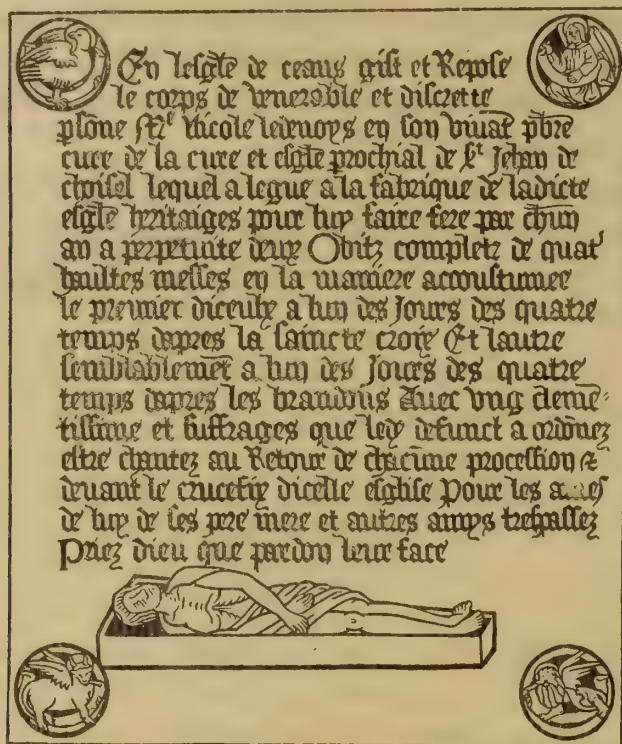 En lesgłe de ceans gist et Repose
le corps de venerable et discrette
psone Mre Nicole ledenoys en son vivāt pbre
cure de la cure et esglē prochial de st Jehan de
choisel lequel a legue a la fabrique de ladicte
esglē heritaiges pour luy faire fere par chūn
an a perpetuite deux Obitz completz de quat'
haultes messes en la maniere acoustumee
le premier diceulx a lun des Jours des quatre
temps dapres la saincte croix Et lautre
semblablemēt a lun des Jours des quatre
temps dapres les brandons Avec ung clemē-
tissime et suffrages que ledx defunct a ordōnez
estre chantez au Retour de chacune procession &
devant le crucefix dicelle esglise Pour les ames
de luy de ses pere mere et autres amys trespassez
Priez dieu que pardon leur face